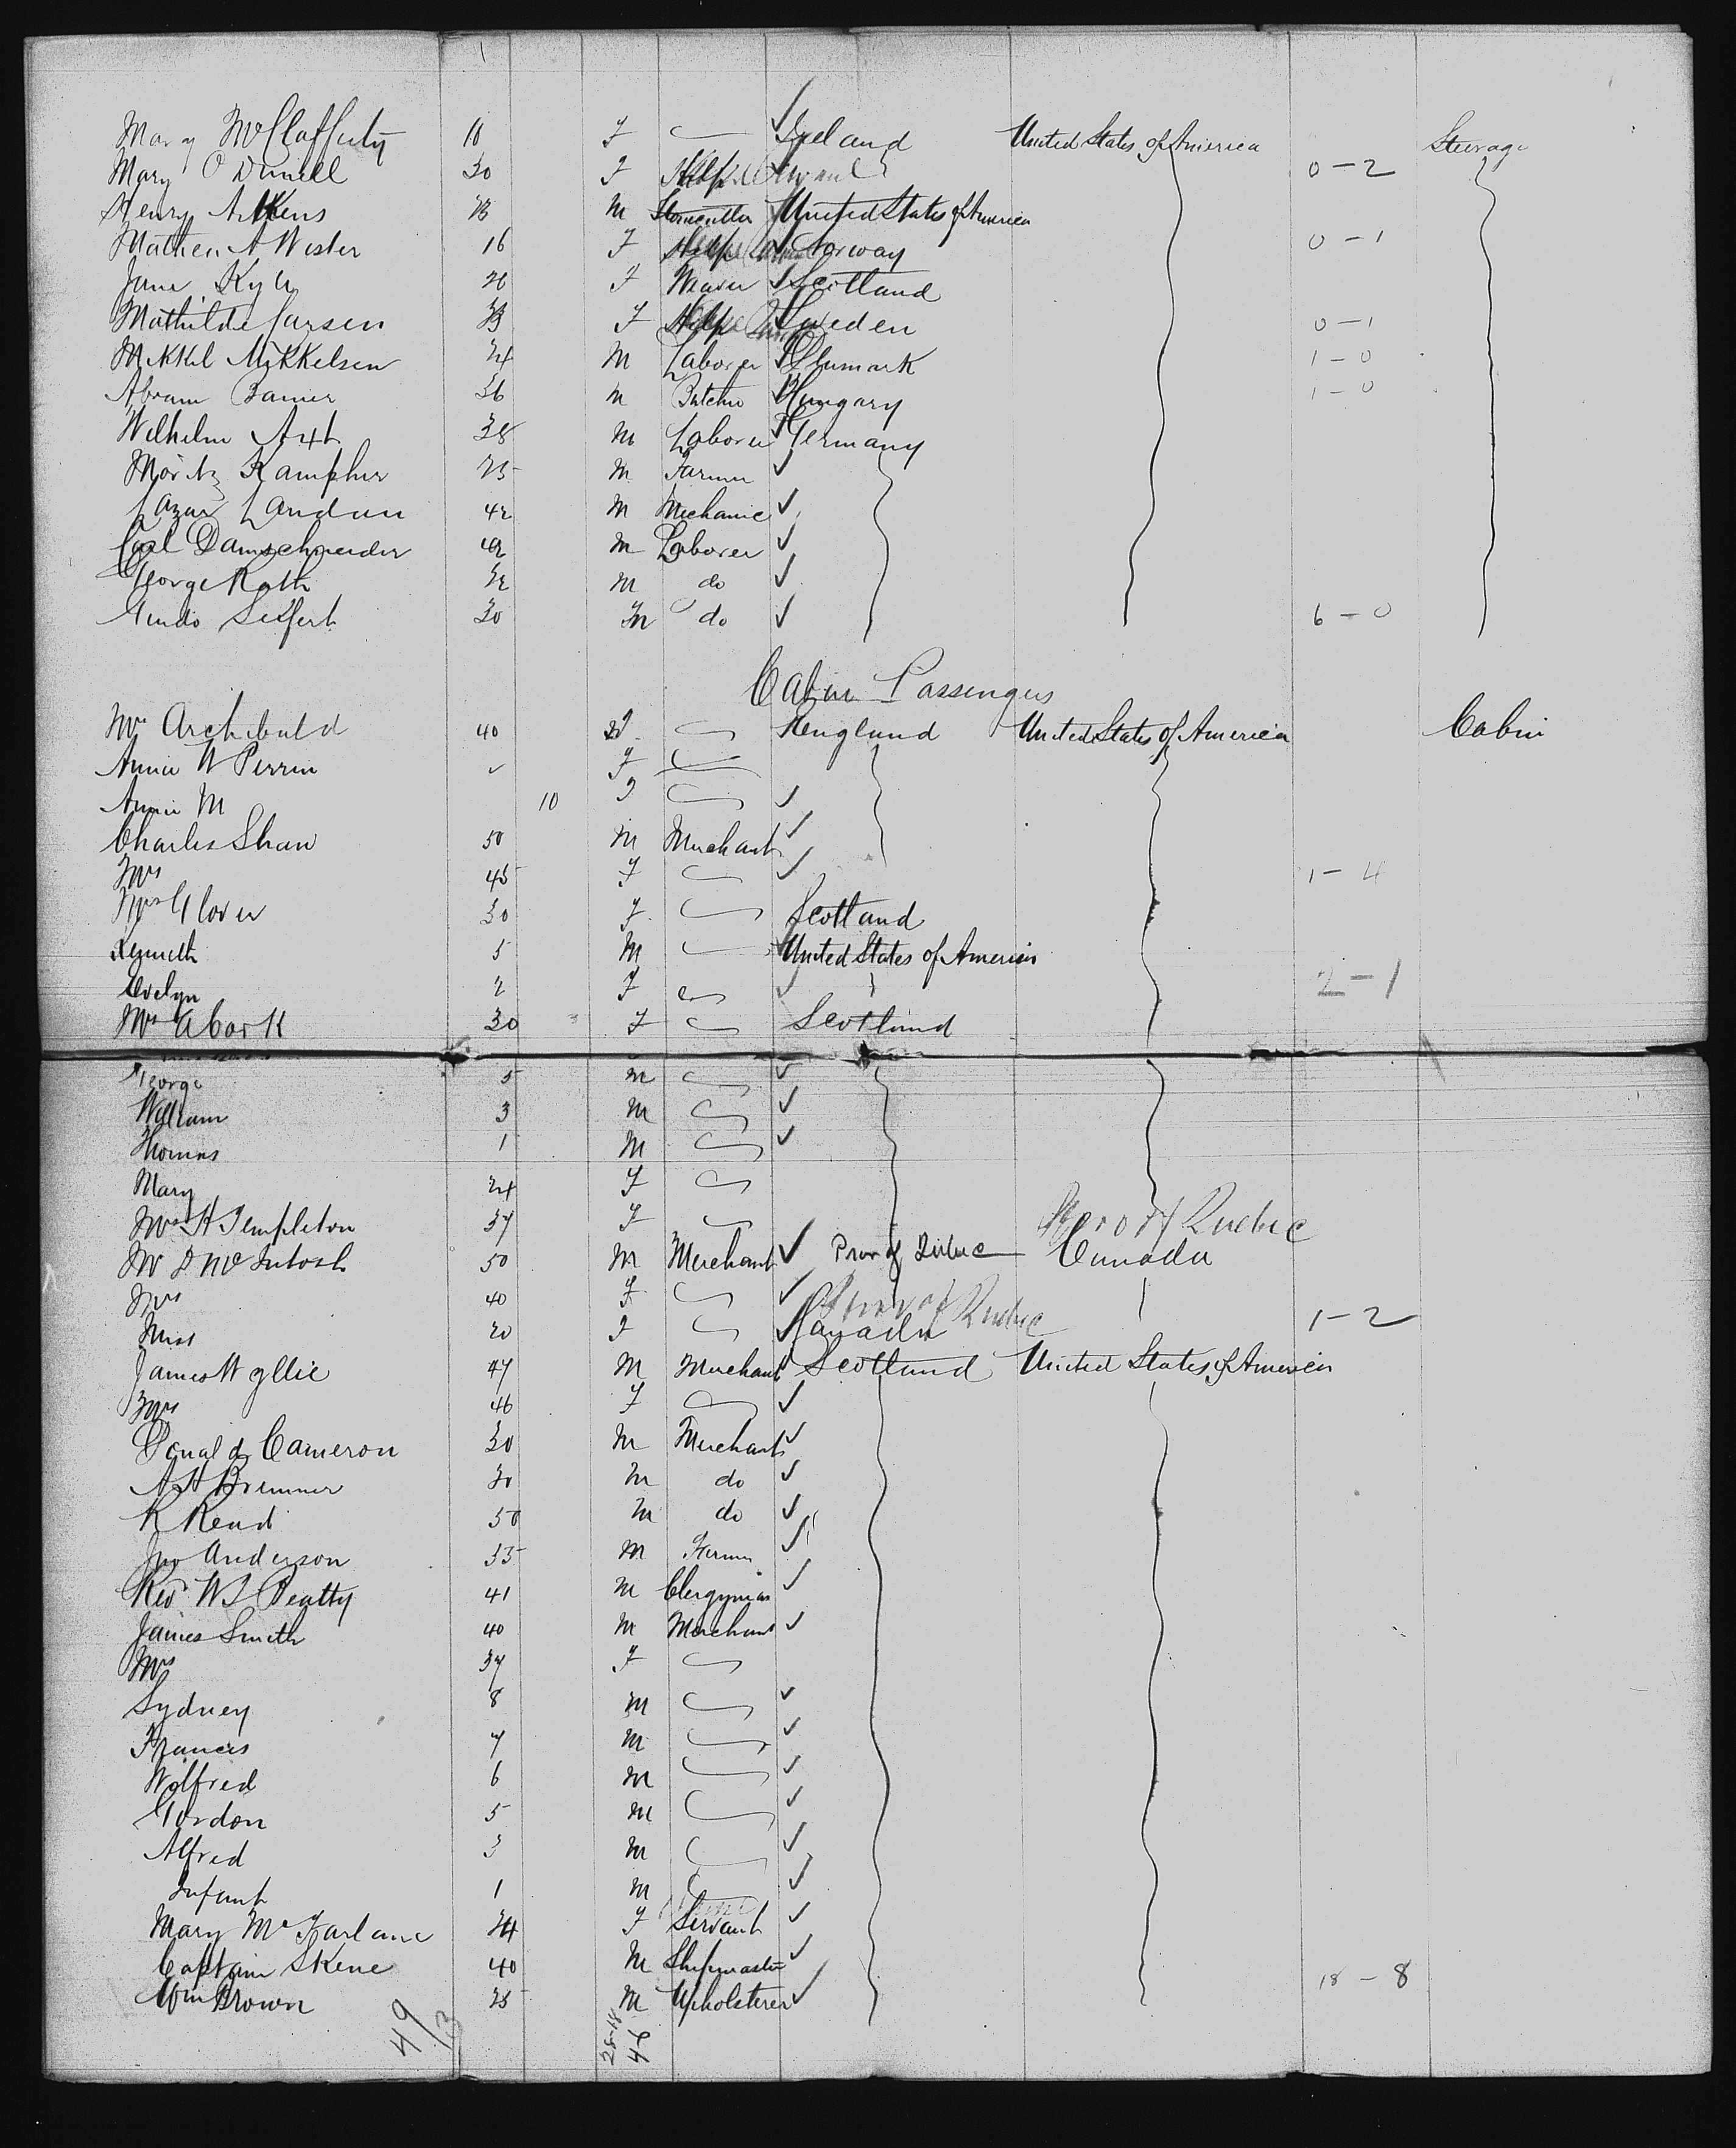 Mary McClafferty 18 F Ireland United States of America Steerage
Mary O'Donnell 30 F 0-2
Henry Aitkens M Stonecutter United States of America
A Wester 16 F Norway 0-1
Jane Kyle 26 F Weaver Scotland
Mathilde Larsen F Sweden 0-1
Mikkel Mikkelsen 24 M Laborer Denmark 1-0
Abram 36 M Butcher Hungary 1-0
Wilhelm Axt 38 M Laborer Germany
Moritz 25 M Farmer
Lazar 42 M Mechanic
Carl Damschneider 42 M Laborer
George Roth 32 M do
Guido Seifert 30 M do 6-0
Cabin Passengers
Mrs Archibald 40 F England United States of America Cabin
Annie W Perrin F
Annie M 10 F
Charles Shaw 50 M Merchant
Mrs 45 F 1-4
Mrs Glover 30 F Scotland
Kenneth 5 M United States of America
Evelyn 2 F 2-1
Mrs 30 F Scotland
George 5 M
William 3 M
Thomas 1 M
Mary 24 F
Mrs H Templeton 37 F Prov of Quebec
Mr D McIntosh 50 M Merchant Prov of Quebec Canada
Mrs 40 F Prov of Quebec
Miss 20 F Canada 1-2
James Wyllie 47 M Merchant Scotland United States of America
Mrs 46 F
Donald Cameron 30 M Merchant
A H Bremner 30 M do
R Read 50 M do
Jno Anderson 35 M Farmer
Revd W Beatty 41 M Clergyman
James Smith 40 M Merchant
Mrs 37 F
Sydney 8 M
Francis 7 M
Wilfred 6 M
Gordon 5 M
Alfred 3 M
Infant 1 M
Mary McFarlane 24 F Servant
Captain Skene 40 M Shipmaster 18-8
Wm Brown 25 M Upholsterer
49/3 28-18
46